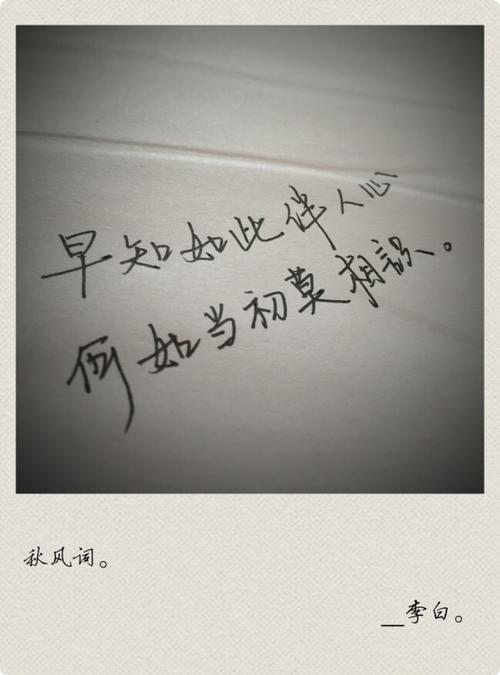 早知如此伴人心
何如当初莫相識、。
秋风词。
__李白。